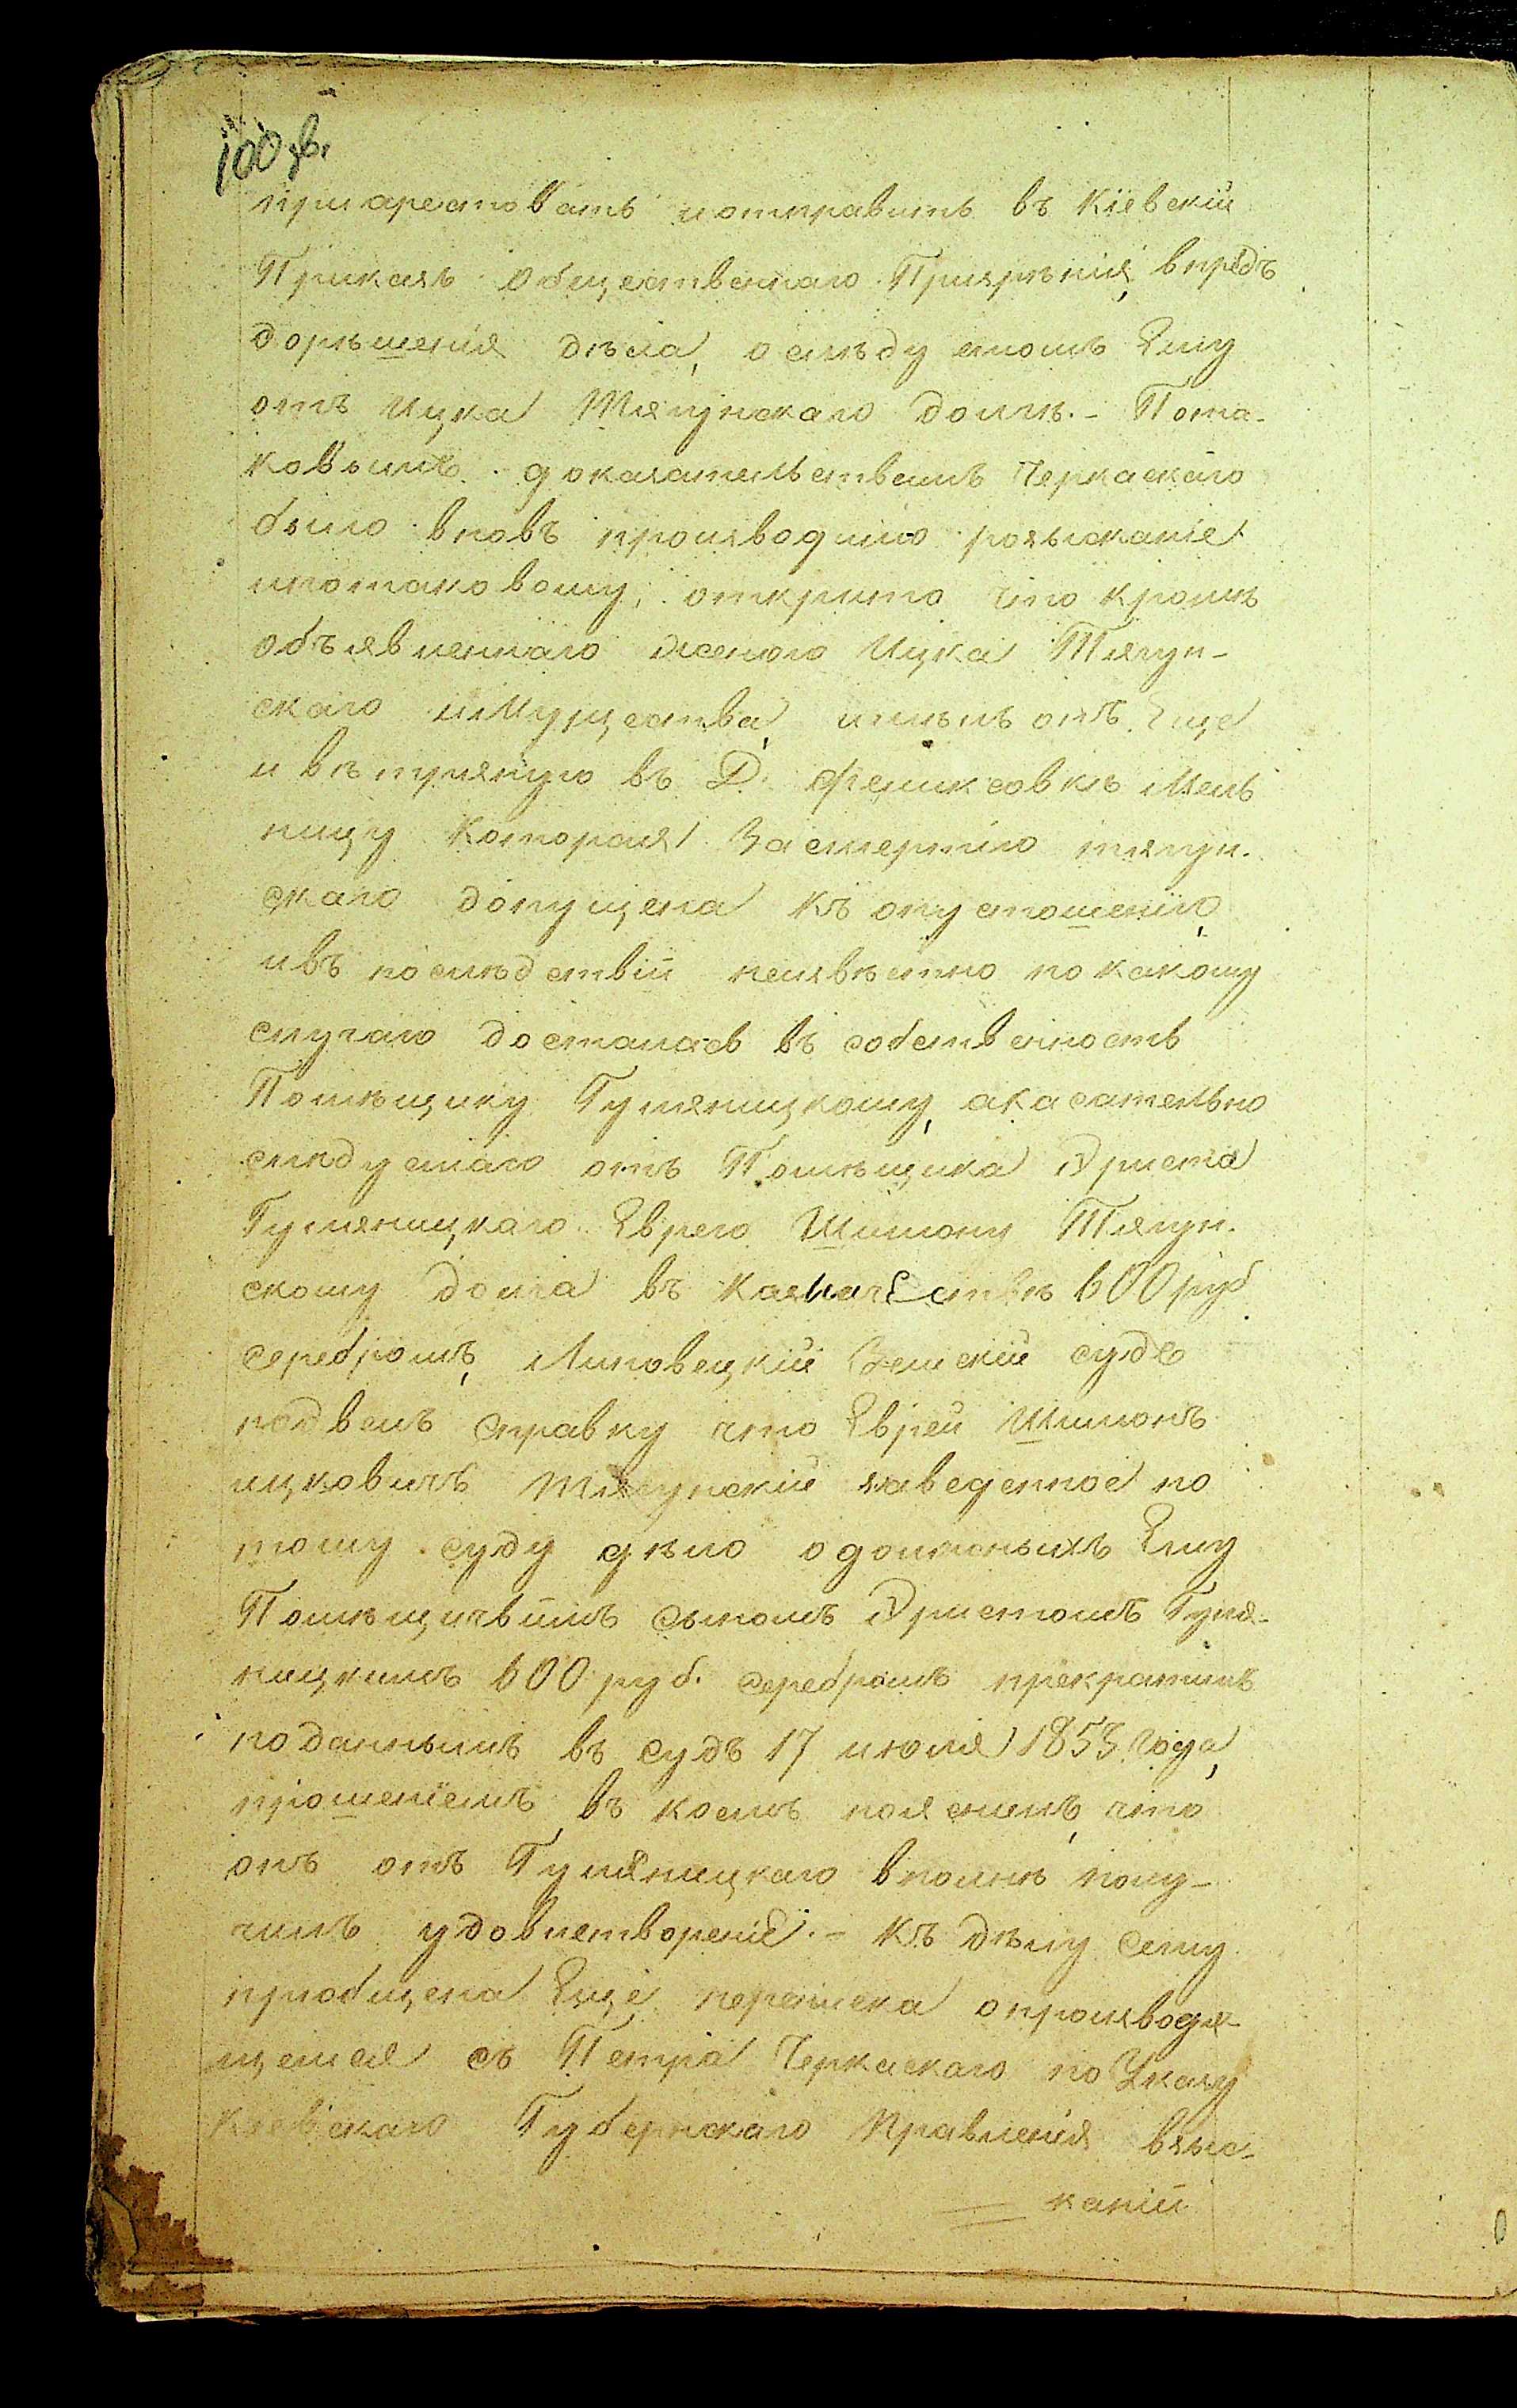 100 об.
приарестовать иотправить въ Кіевскій
Приказъ Общественаго Призрѣнія, впрѣдъ
дорѣшенія дѣла, о слѣду емомъ Ему
отъ Ицка Тягунскаго долгѣ.- Пота-
ковымъ доказательствамъ Черкаскаго
было вновъ производимо розысканіе
ипотаковому, открыто что кромѣ
объявленнаго женою Ицка Тягун-
скаго имущества, имѣлъ онъ Еще
и вѣтряную въ Д. Феликсовкѣ мель
ницу Которая Засмертію тягун.
скаго допущена къ опустошенію,
ивъ послѣдствіи неизвѣстно по какому
случаю досталась въ собственность
Помѣщику Гумяницкому, акасательно
слѣдуемаго отъ Помѣщика Эриста
Гумяницкаго Еврею Шимону Тягун.
скому долга въ Каличествѣ 600 руб
серебромъ, Липовецкій Земскій судъ
подвелъ справку что Еврей Шимонъ
ицковичъ Тягунскій заведенное по
тому суду дѣло одолжныхъ Ему
Помѣщичьимъ сыномъ Эристомъ Гумя-
ницкимъ 600 руб. серебромъ прекратилъ
поданнымъ въ судъ 17 июля 1853 года,
прошеніемъ, въ коемъ пояснилъ, что
онъ отъ Гумяницкаго вполнѣ полу-
чилъ удовлетвореніе.- Къ дѣлу сему
приобщена Еще переписка опроизводя-
щемся съ Петра Черкаскаго по Указу
Кіевскаго Губернскаго Правленія взыс-
каніи